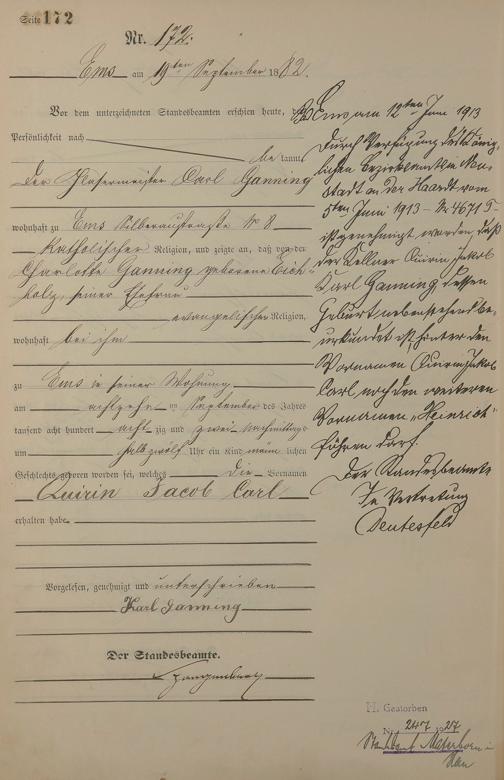 Seite 172
Nr. 172.
Ems am 19ten September 1882.
Vor dem unterzeichneten Standesbeamten erschien heute, der
Persönlichkeit nach
be kannt,
der Glasermeister Carl Ganning
wohnhaft zu Ems Silberaustraße № 8
katholischer Religion, und zeigte an, daß von der
Charlotte Ganning geborene Eich-
holz, seiner Ehefrau
evangelischer Religion,
wohnhaft bei ihm
zu Ems in seiner Wohnung
am achtzehn ten September des Jahres
tausend acht hundert acht zig und zwei Nachmittags
um halb zwölf Uhr ein Kind männ lichen
Geschlechts geboren worden sei, welches die Vornamen
Quirin Jacob Carl
erhalten habe.
Vorgelesen, genehmigt und unterschrieben
Karl Ganning
Der Standesbeamte.
Ems am 12ten Juni 1913
Durch Verfügung des König-
lichen Bezirksamts in Neu-
stadt an der Haardt vom
5ten Juni 1913 – № 4671 
ist genehmigt worden, daß
der Kellner Quirin Jakob
Karl Ganning dessen
Geburt nebenstehend be-
urkundet ist, hinter den
Vornamen Quirin Jakob
Carl noch den weiteren
Vornamen „Heinrich“
führen darf.
Der Standesbeamte
In Vertretung
H. Gestorben
Nr. 247 1927
Standesamt